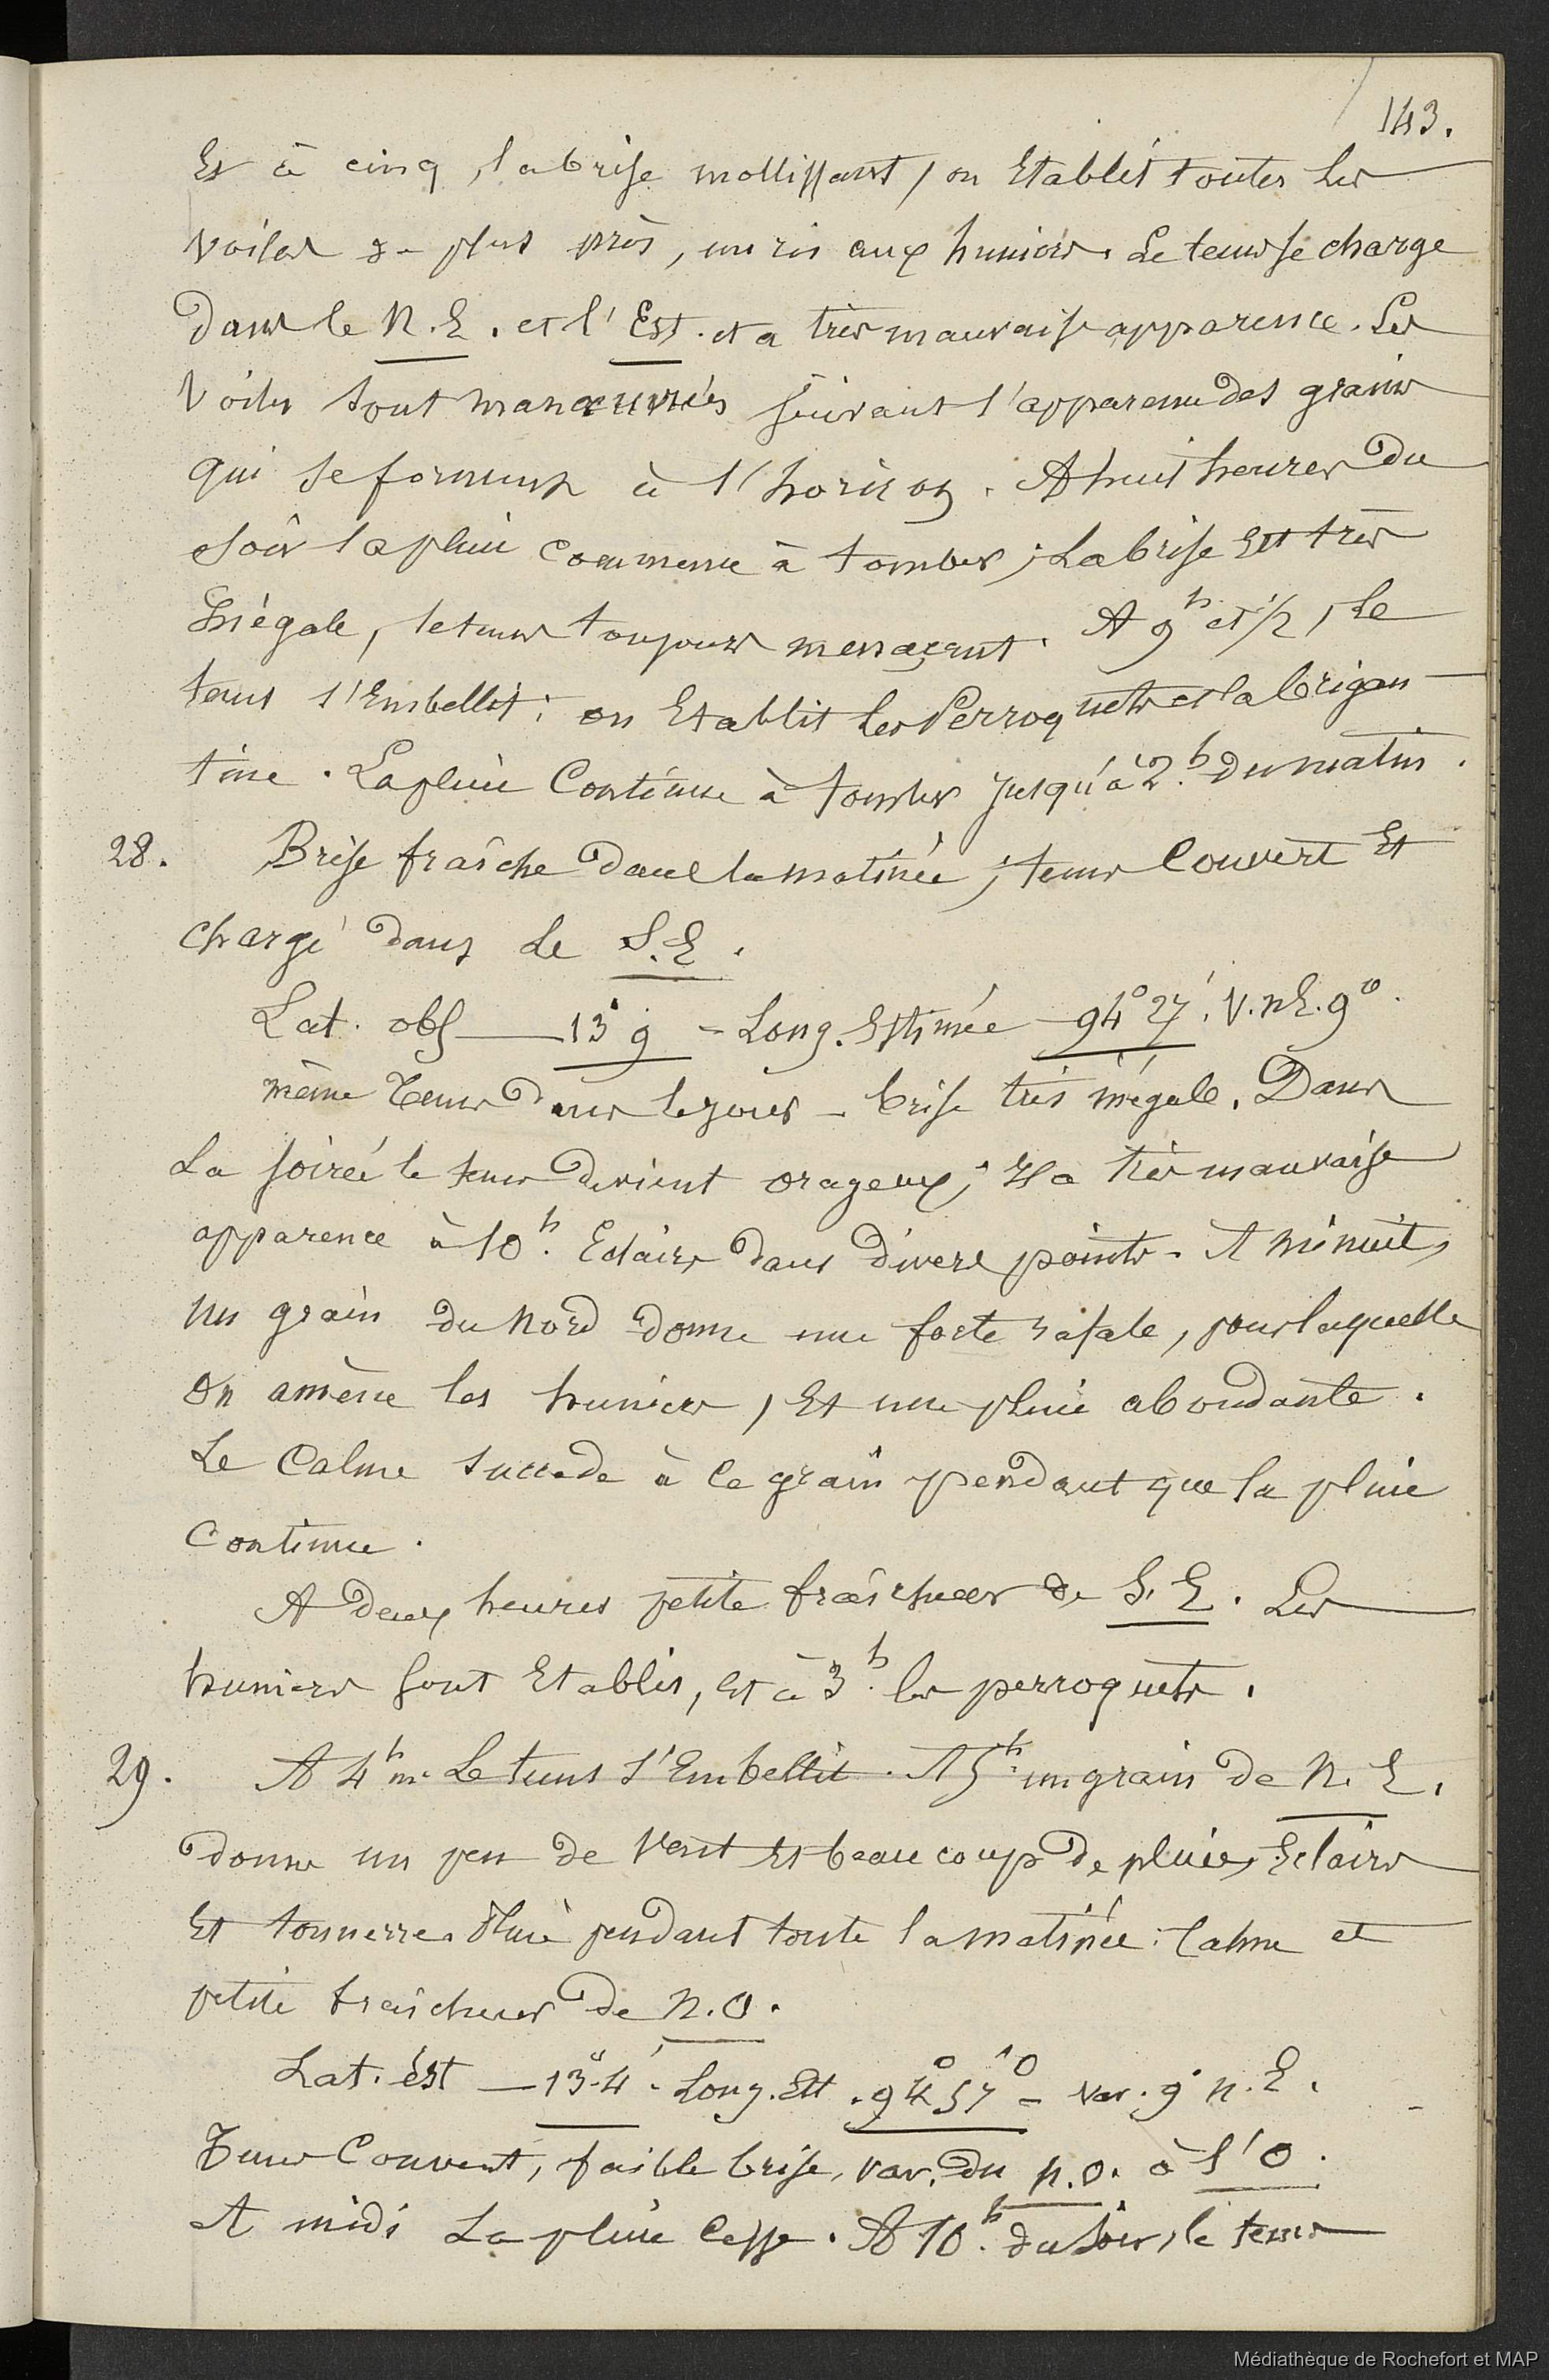 143.
Et à cinq, la brise mollissant, on Etablit toutes les
voiles du plus près, un ris aux huniers. Le tems se charge
Dans le N.E. et l'Est. et a très mauvaise apparence. Les
voiles sont manœuvrées suivant l'apparence des grains
qui se forment à l'horizon. A huit heures du
soir la pluie commence à tomber ; La brise Est très
Inégale, le tems toujours menaçant. A 9h et 1/2, Le
tems s'Embellit ; on Etablit les Perroquets et la brigan
tine. La pluie Continue à tomber jusqu'à 2h. du matin.
28. Brise fraîche dans la matinée ; tems Couvert Et
chargé dans Le S.E.
Lat. obs — 13° 9 = Long. Estimée 94° 27'. V. NE. 9°.
même tems Dans le jour - brise très inégale. Dans
La soirée le tems devient orageux ; Il a très mauvaise
apparence à 10h. Eclairs dans divers points. A minuit,
un grain du Nord donne une forte rafale, pour laquelle
on amène les huniers, Et une pluie abondante.
Le Calme succède à ce grain pendant que la pluie
Continue.
A deux heures petite fraîcheur de S.E. Les
huniers sont Etablis, Et à 3h. les perroquets.
29. A 4h m. Le tems s'Embellit. A 5h. un grain de N.E.
donne un peu de vent Et beaucoup de pluie, Eclairs
Et tonnerre. Pluie pendant toute la matinée. Calme et
petite fraîcheur de N.O.
Lat. ést — 13° 4'. Long. Est. 94° 57' O = var. 9° N.E.
Tems Couvert, faible brise, var. du N.O. à l'O.
A midi La pluie Cesse. A 10h. du soir, le tems
Médiathèque de Rochefort et MAP